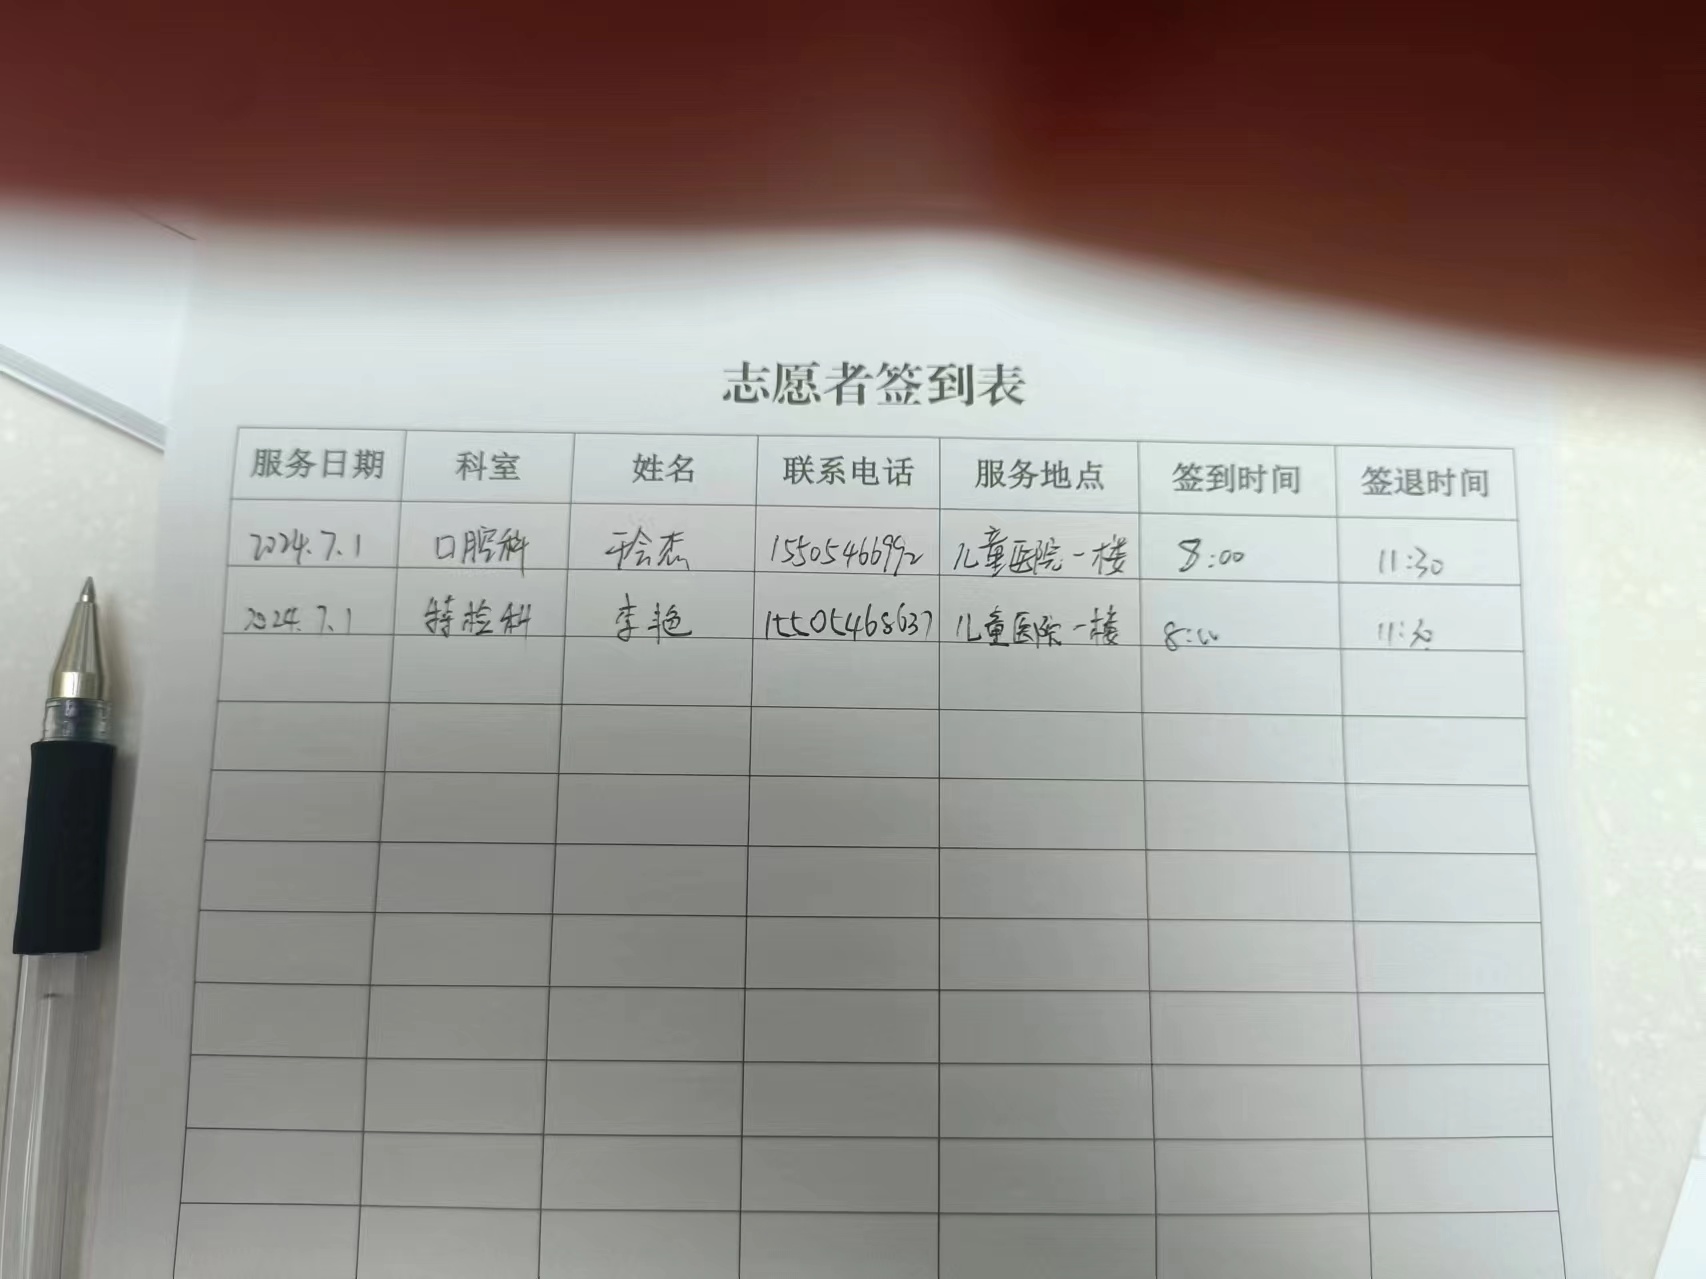 志愿者签到表
服务日期 科室 姓名 联系电话 服务地点 签到时间 签退时间
2024.7.1 口腔科 于会杰 15505466992 儿童医院一楼 8:00 11:30
2024.7.1 特检科 李艳 15505468637 儿童医院一楼 8:00 11:30